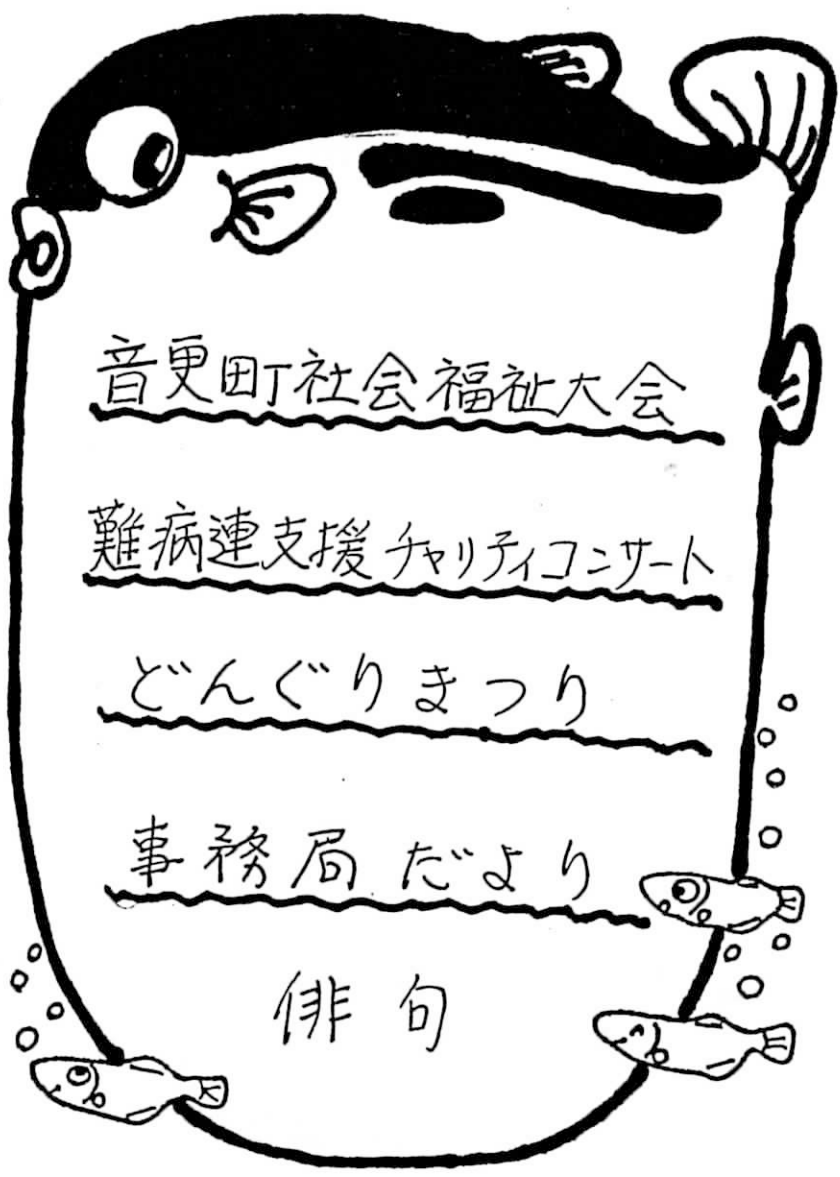 音更町社会福祉大会
難病連支援チャリティコンサート
どんぐりまつり
事務局だより
俳句